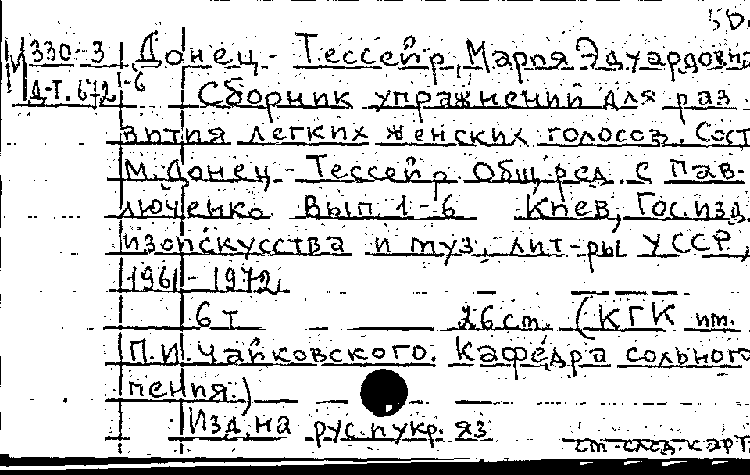 50.
М330-3 Донец-Тессейр, Мария Эдуардовна
Д-Т.672 1-6 Сборник упражнений для раз
вития легких женских голосов. Сост
М. Донец-Тессейр. Общ. ред. С Пав-
люченко Вып. 1-6 Киев, Гос. изд.
изоискусства и муз. лит-ры УССР,
1961-1972
6т 26 см. (КГК им.
П.И. Чайковского. Кафедра сольного
пения.)
Изд. на рус. и укр. яз
см след. карт